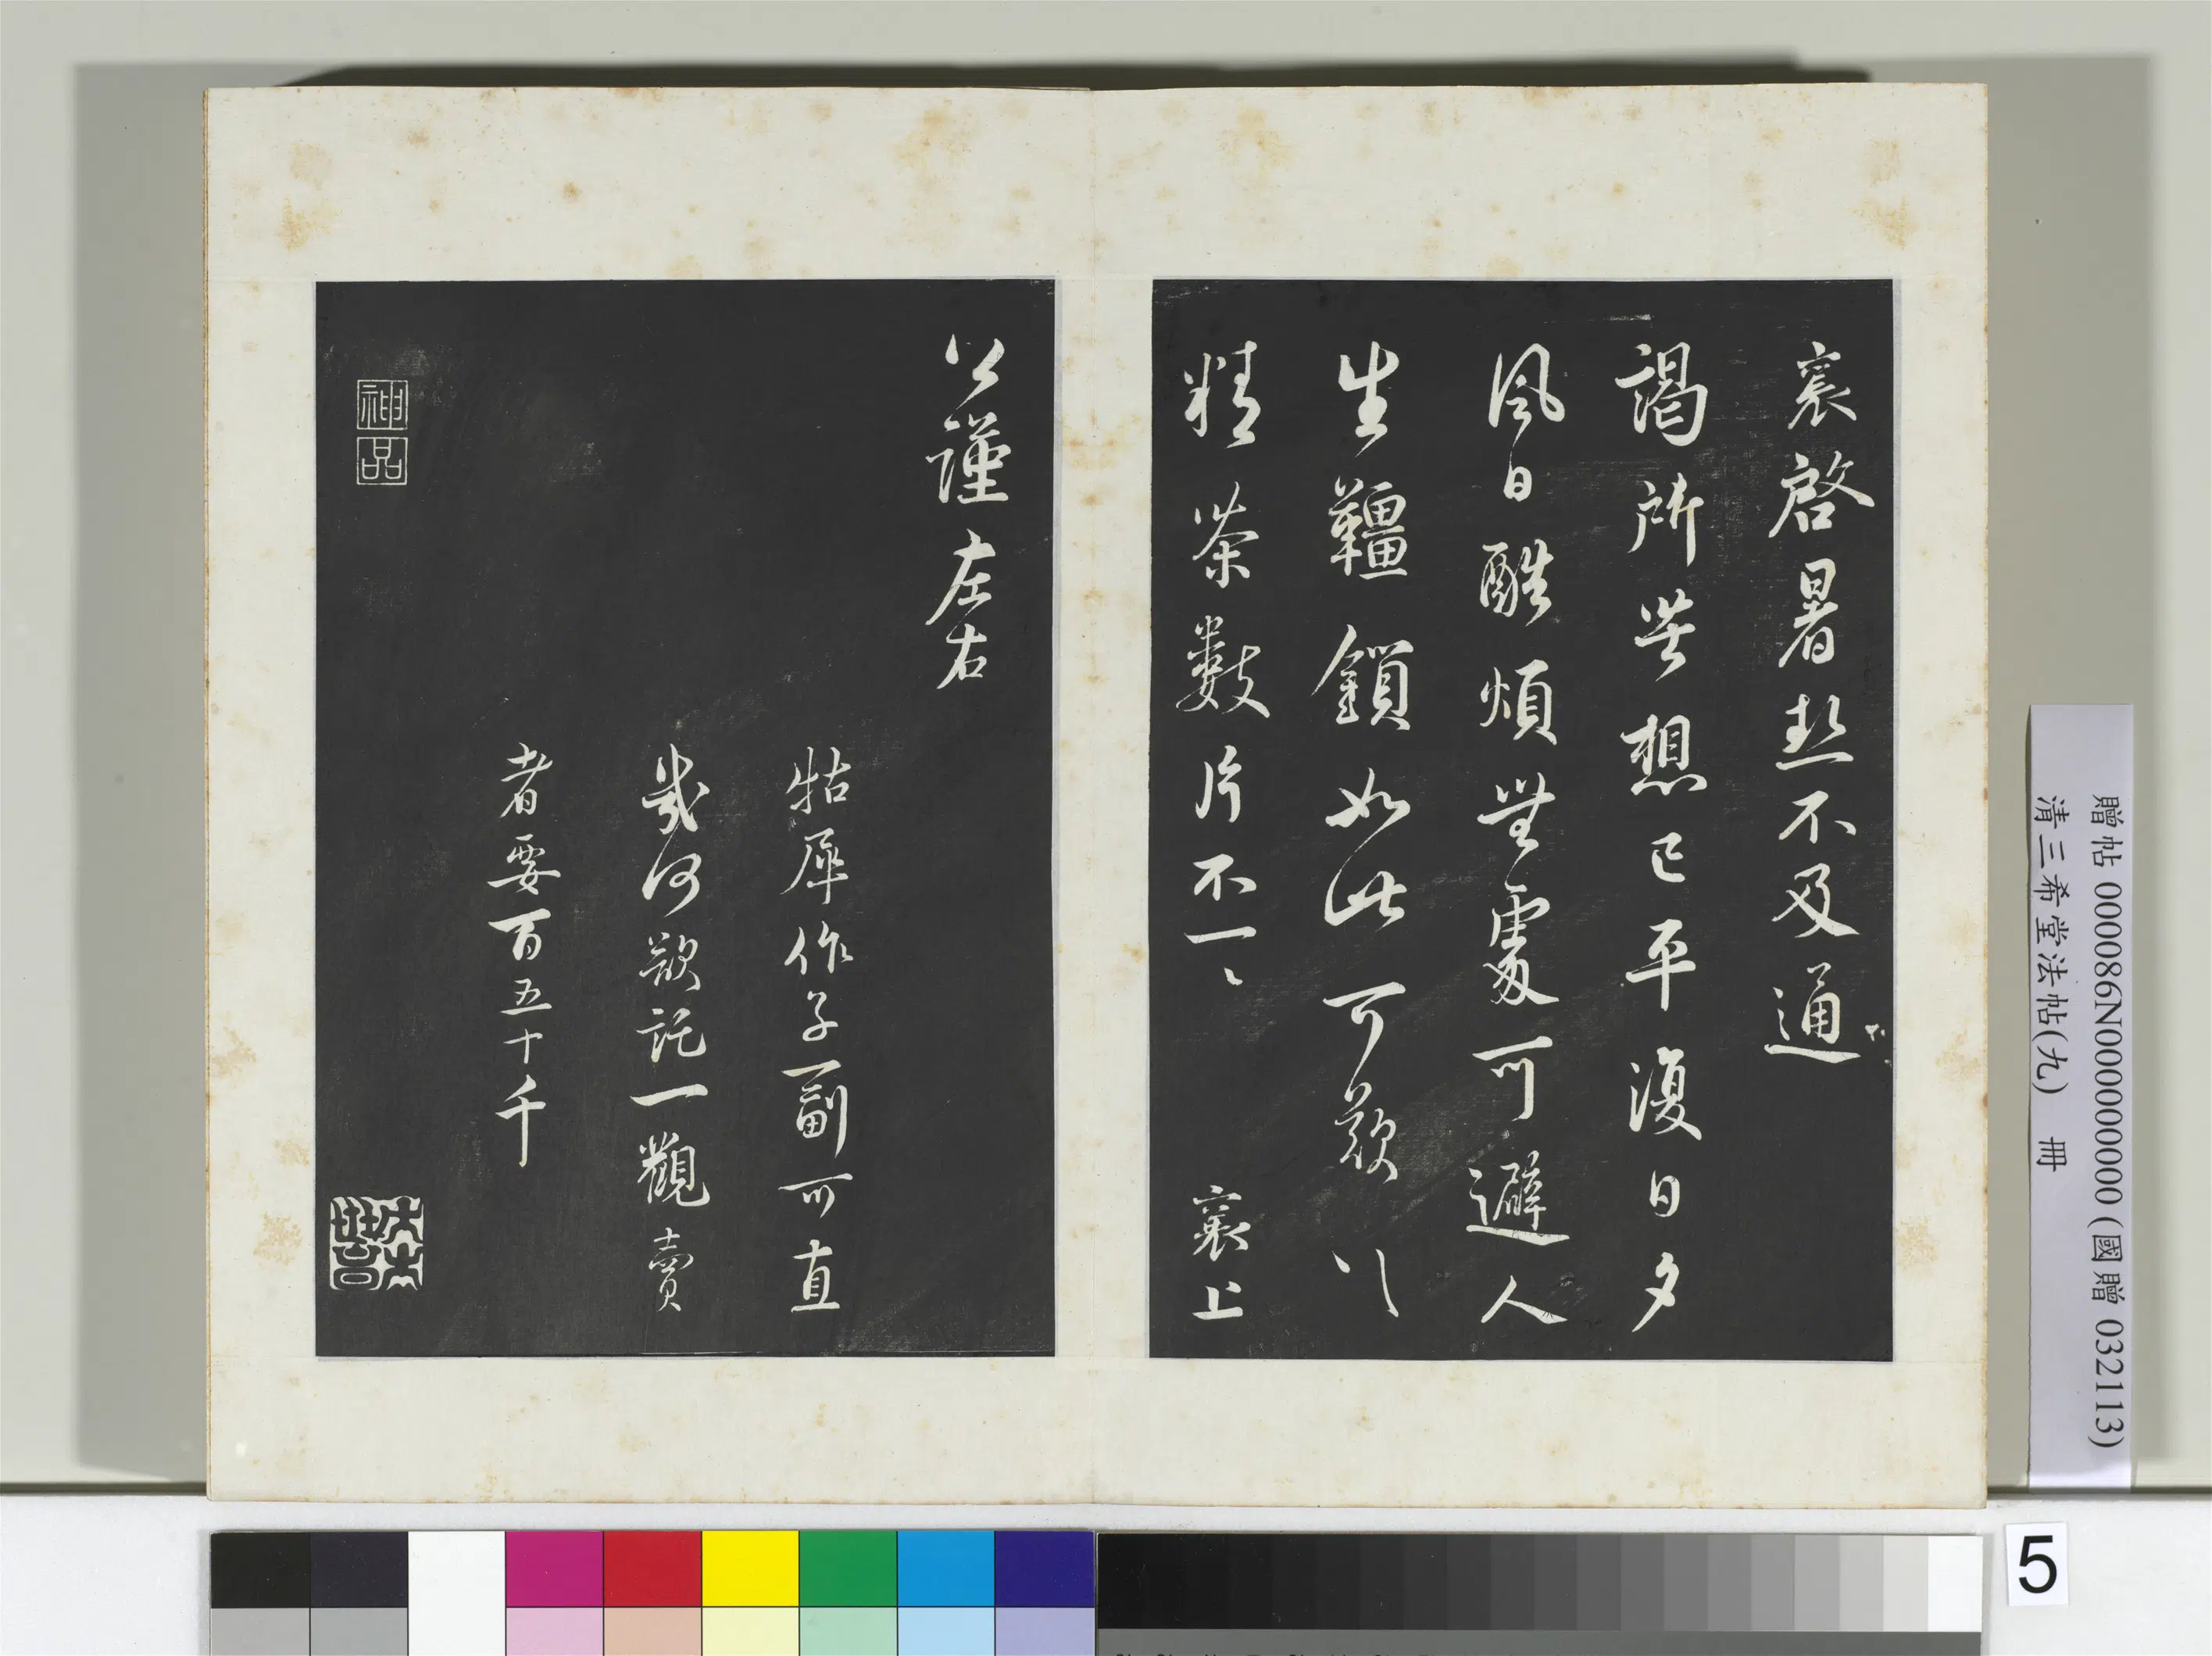 襄啓暑熱不及通
謁所苦想已平復日夕
風日酷煩無處可避人
生韁鎖如此可歎〻
精茶數片不一〻
襄上
公謹左右
牯犀作子一副可直
幾何欲託一觀賣
者要百五十千
神
品
贈帖 000086N000000000 (國贈 032113)
清三希堂法帖(九) 冊
5